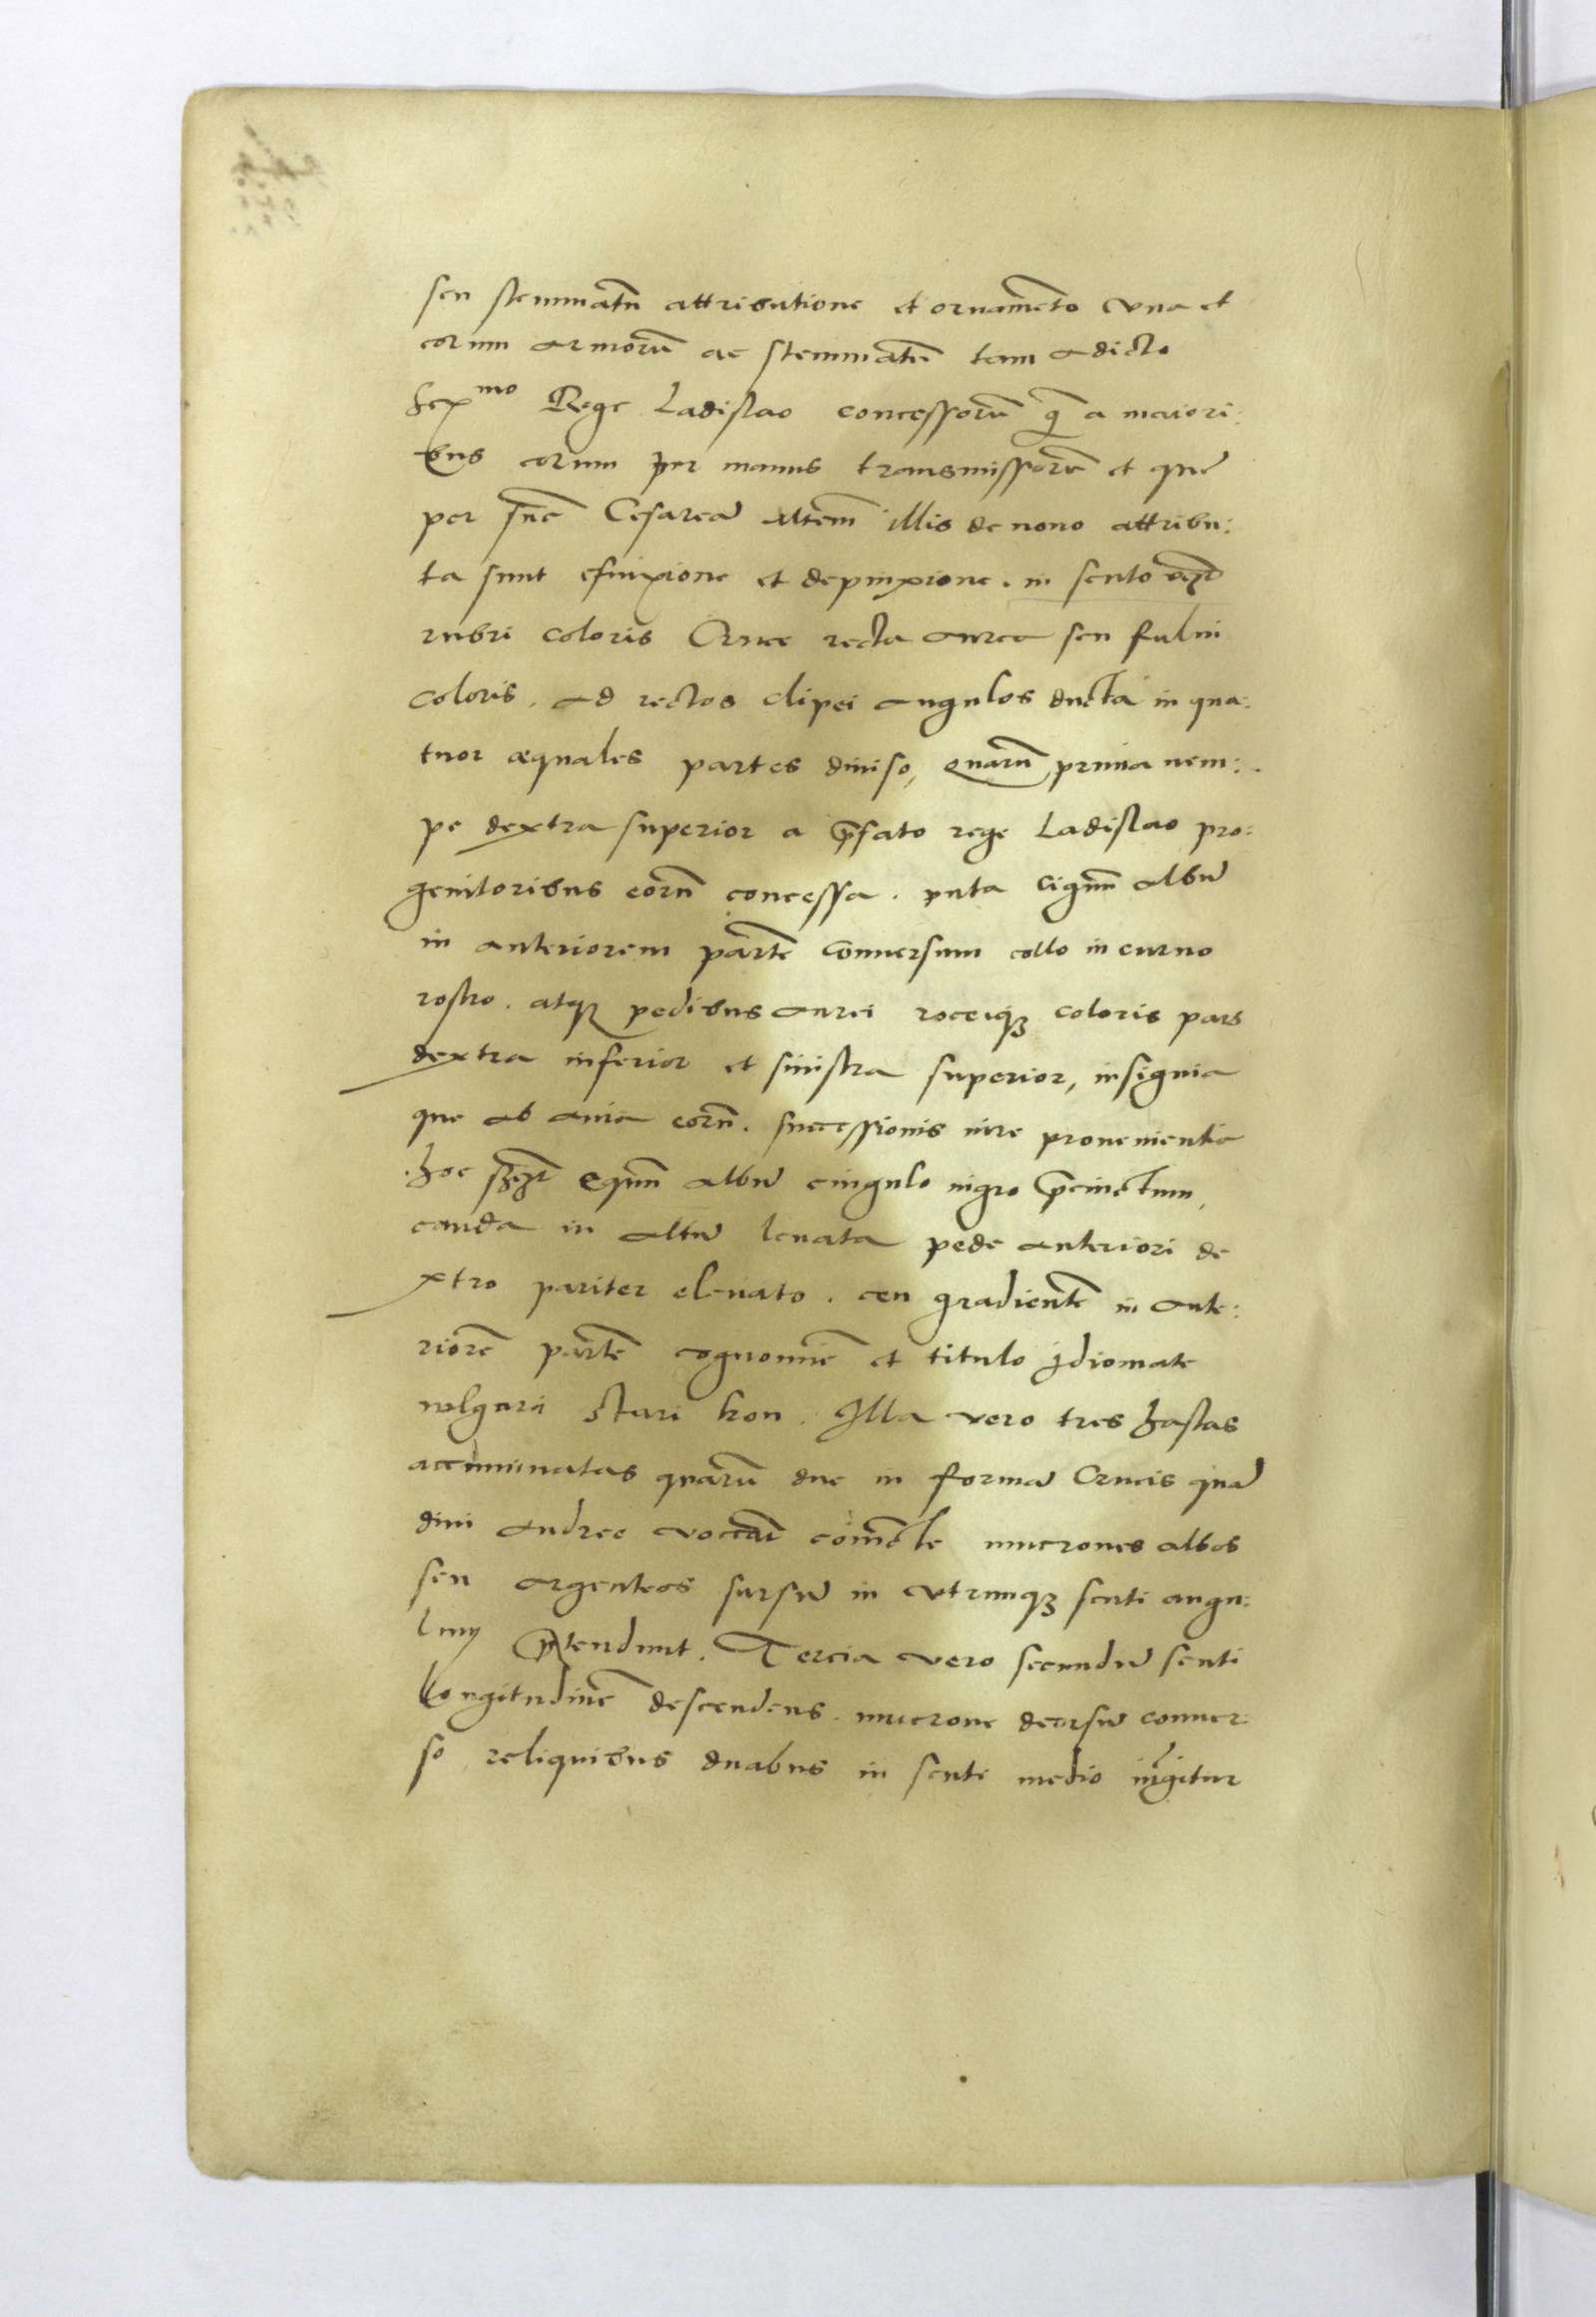 seu stemmatū attributione et ornamēto vna et
eorum armorū ac stemmatū tam a dicto
Serᵐᵒ Rege Ladislao concessorū q̄ a maiori:
bus eorum per manus transmissorū et que
per Cesareā illis de nouo attribu:
ta sunt efinxione et depinxione. in scuto vcz
rubri coloris Cruce recta aurea seu fului
coloris. ad rectos clipei angulos ducta in qua:
tuor æquales partes diuiso, quarū prima nem:
pe dextra superior a p̄fato rege Ladislao pro:
genitoribus eorū concessa. puta cignū albū
in anteriorem partē conuersum collo incuruo
rostro. atqꝫ pedibus aurei croceiqꝫ coloris pars
dextra inferior et sinistra superior, insignia
que ab auia eorū. successionis iure prouenientia
hoc equū albū cingulo nigro p̄cinctum,
cauda in altū leuata pede anteriori de
xtro pariter eleuato. ceu gradientē in ante:
riorē partē cognomiē et titulo Idiomate
vulgari Stari kon. Illa vero tres hastas
accuminatas quarū due in formā Crucis quā
diui Andree vocāt mucrones albos
seu argenteos sursū in vtrumqꝫ scuti angu:
lum p̄tendunt. Tercia vero secundū scuti
longitudinē descendens. mucrone deorsū conuer
so reliquibus duabus in scuti medio iūgitur